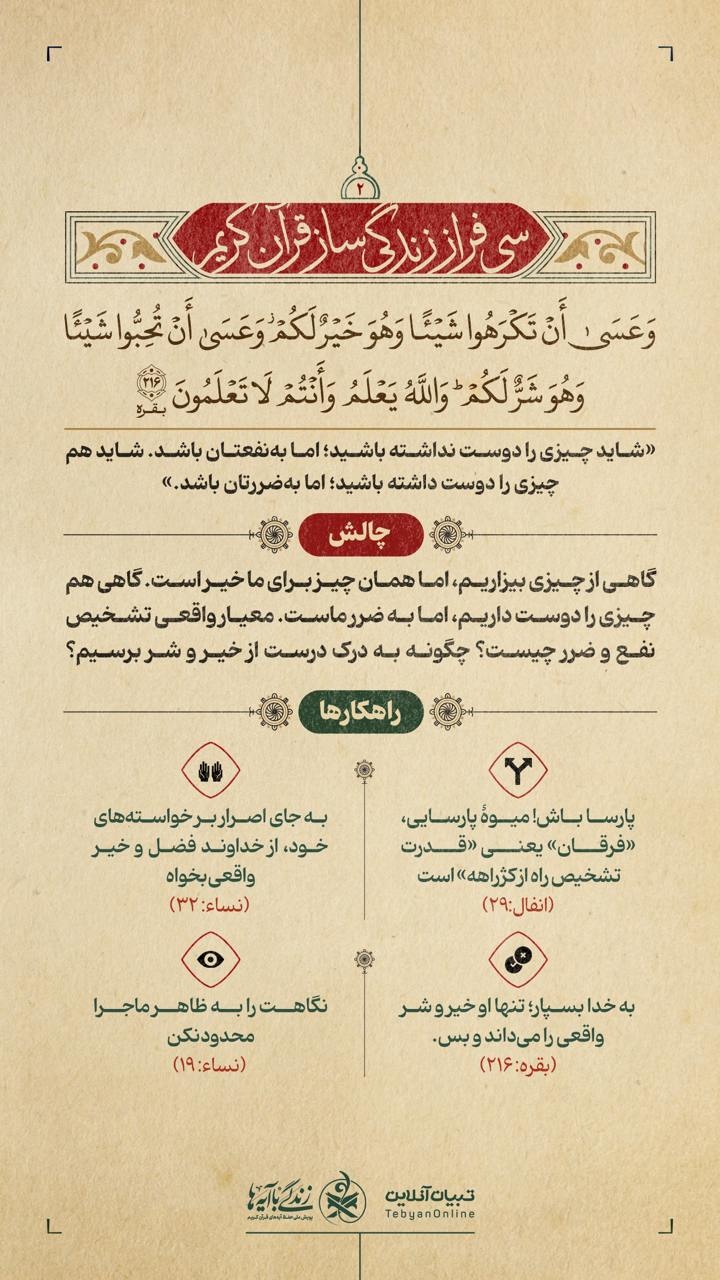 ۲
سی فراز زندگی‌ساز قرآن کریم
وَعَسَىٰ أَنْ تَكْرَهُوا شَيْئًا وَهُوَ خَيْرٌ لَكُمْ ۖ وَعَسَىٰ أَنْ تُحِبُّوا شَيْئًا
وَهُوَ شَرٌّ لَكُمْ ۗ وَاللَّهُ يَعْلَمُ وَأَنْتُمْ لَا تَعْلَمُونَ ۲۱۶ بقره
«شاید چیزی را دوست نداشته باشید؛ اما به‌نفعتان باشد. شاید هم
چیزی را دوست داشته باشید؛ اما به‌ضررتان باشد.»
چالش
گاهی از چیزی بیزاریم، اما همان چیز برای ما خیر است. گاهی هم
چیزی را دوست داریم، اما به ضرر ماست. معیار واقعی تشخیص
نفع و ضرر چیست؟ چگونه به درک درست از خیر و شر برسیم؟
راهکارها
پارسا باش! میوهٔ پارسایی،
«فرقان» یعنی «قدرت
تشخیص راه از کژراهه» است
(انفال:۲۹)
به جای اصرار بر خواسته‌های
خود، از خداوند فضل و خیر
واقعی بخواه
(نساء: ۳۲)
به خدا بسپار؛ تنها او خیر و شر
واقعی را می‌داند و بس.
(بقره: ۲۱۶)
نگاهت را به ظاهر ماجرا
محدود نکن
(نساء: ۱۹)
تبیان آنلاین
TebyanOnline
زندگی با آیه‌ها
پویش ملی حفظ آیه‌های قرآن کریم